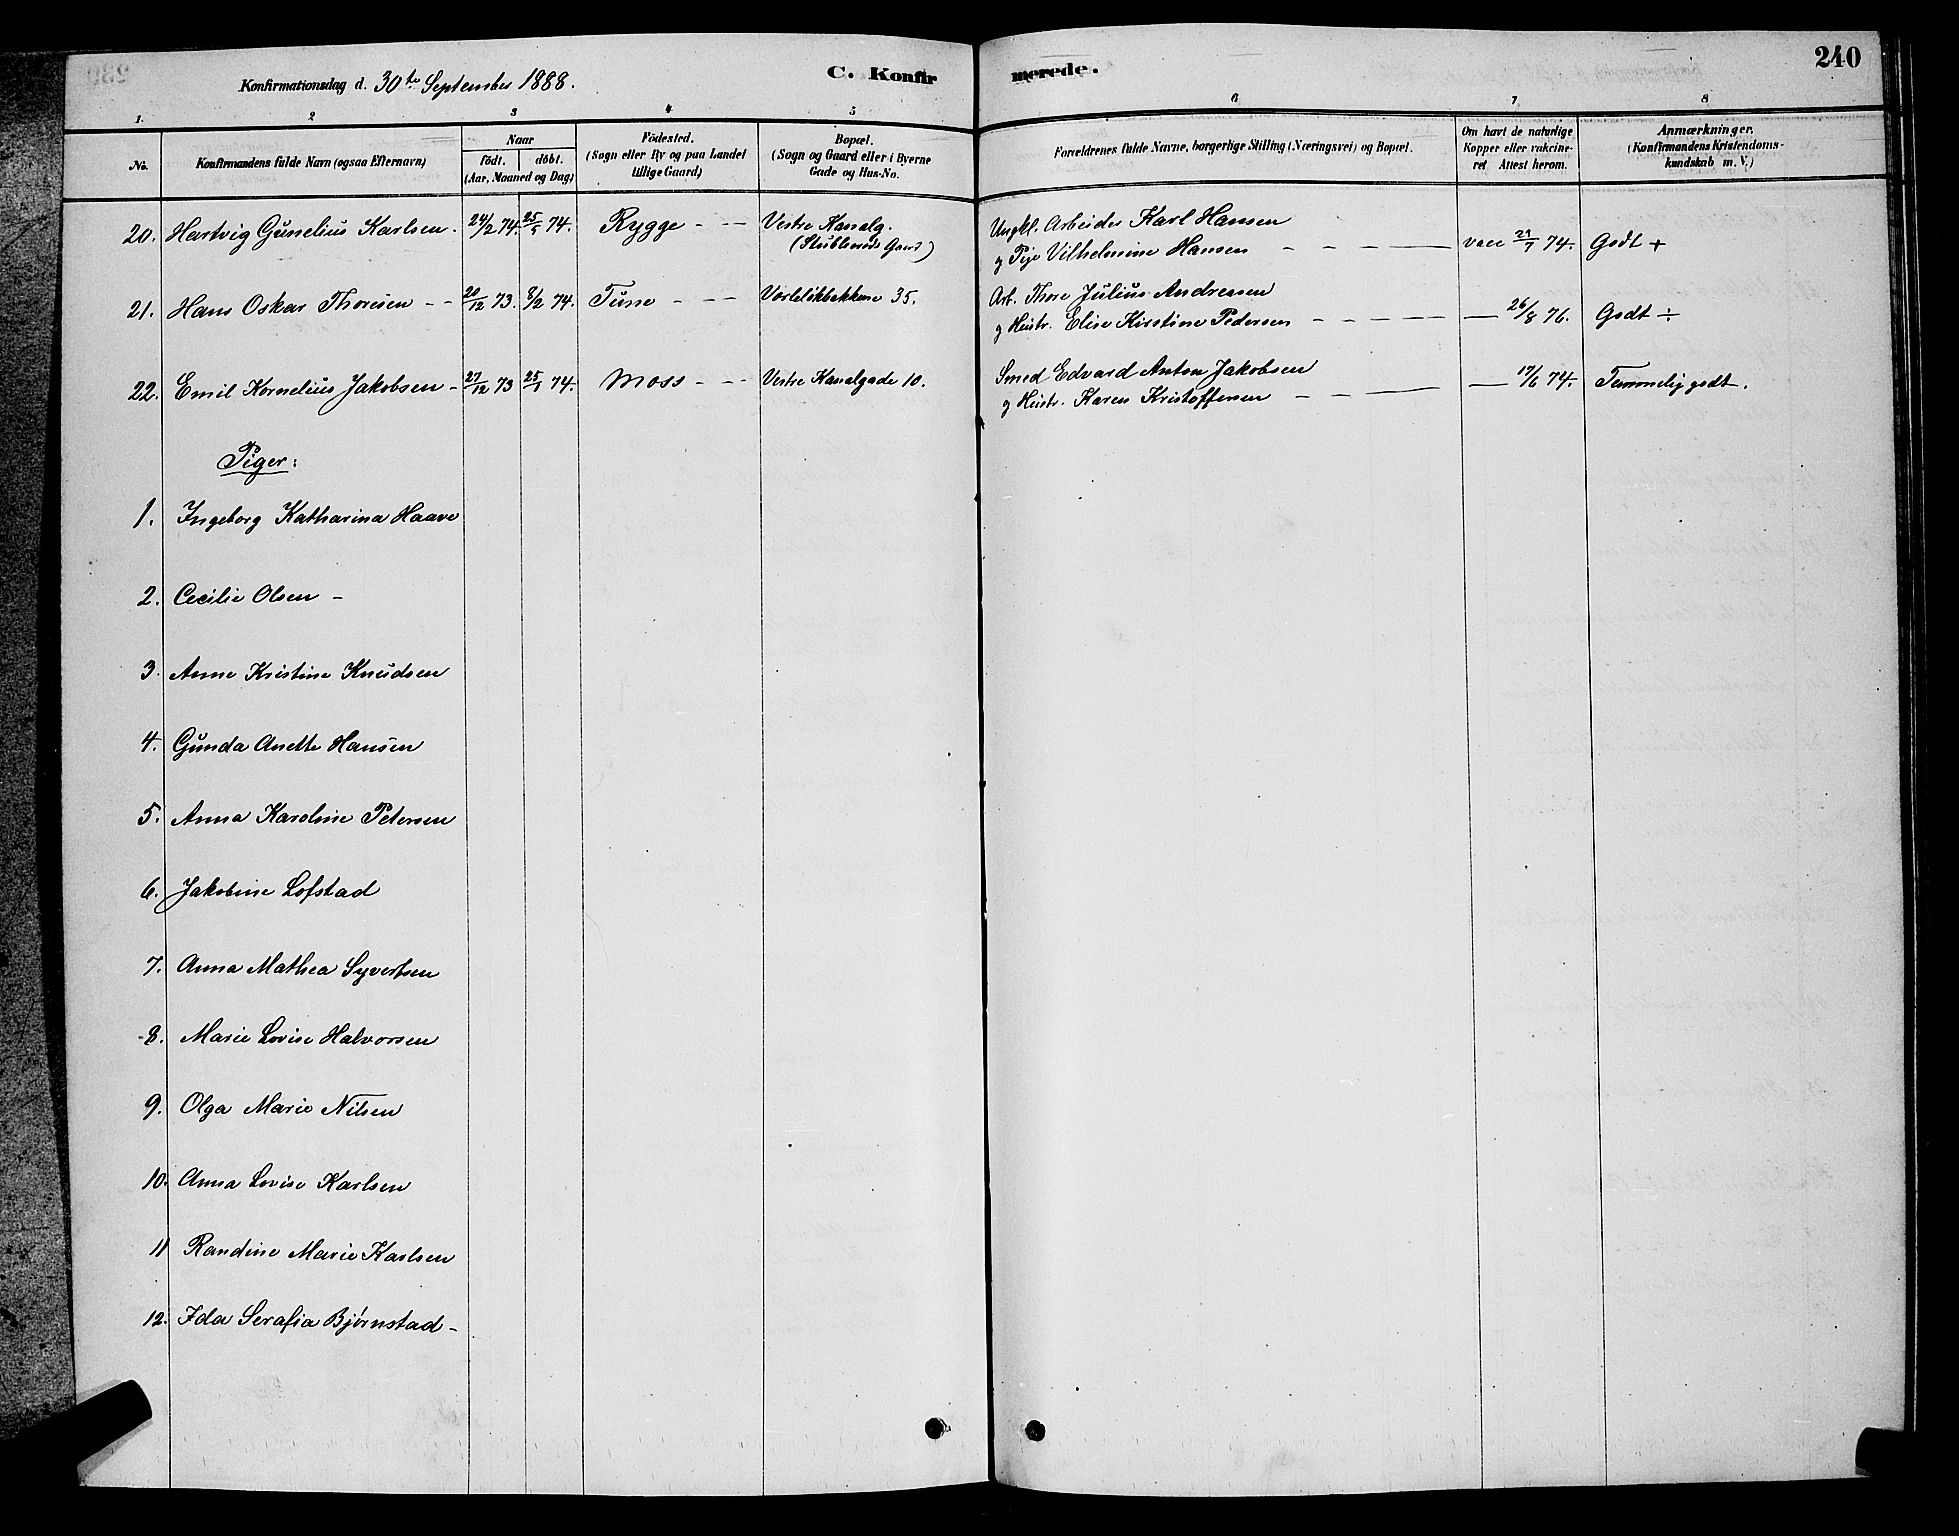 Konfirmationsdag d. 30te September 1888.
C. Konfir
merede.
240
1.
2
3
4
5
6
7
8
No.
Konfirmandens fulde Navn (ogsaa Efternavn)
Naar
födt.
döbt.
(Aar, Maaned og Dag)
Födested.
(Sogn eller By og paa Landet
tillige Gaard)
Bopæl.
(Sogn og Gaard eller i Byerne
Gade og Hus-No.
Forældrenes fulde Navne, borgerlige Stilling (Næringsvei) og Bopæl.
Om havt de naturlige
Kopper eller vakcine-
ret Attest herom.
Anmærkninger.
(Konfirmandens Kristendoms-
kundskab m. V.)
20. Hartvig Gunelius Karlsen. 24/2 74. 25/5 74. Rygge - - - Vestre Kanalg. Ungkl. Arbeider Karl Hansen
og Pige Vilhelmine Hansen - - - - vacc 21/7 74. Godt +
21. Hans Oskar Thoresen - - 20/12 73. 8/2 74. Tune - - - Varleløkbakkene 35. Arb. Thore Julius Andresen
g Hustr. Elise Kirstine Pedersen - - - - - 26/8 76. Godt ÷
22. Emil Kornelius Jakobsen - 27/12 73 25/1 74. Moss - - - Vestre Kanalgade 10. Smed Edvard Anton Jakobsen
g Hustr. Karen Kristoffersen - - - - 17/6 74. Temmelig godt.
Piger:
1. Ingeborg Katharina Haave
2. Cecilie Olsen -
3. Anne Kristine Knudsen
4. Gunda Anette Hansen
5. Anna Karoline Petersen
6. Jakobine Lofstad
7. Anna Mathea Syvertsen
8. Marie Lovise Halvorsen
9. Olga Marie Nilsen
10. Anna Lovise Karlsen
11 Randine Marie Karlsen
12. Ida Serafia Bjørnstad -